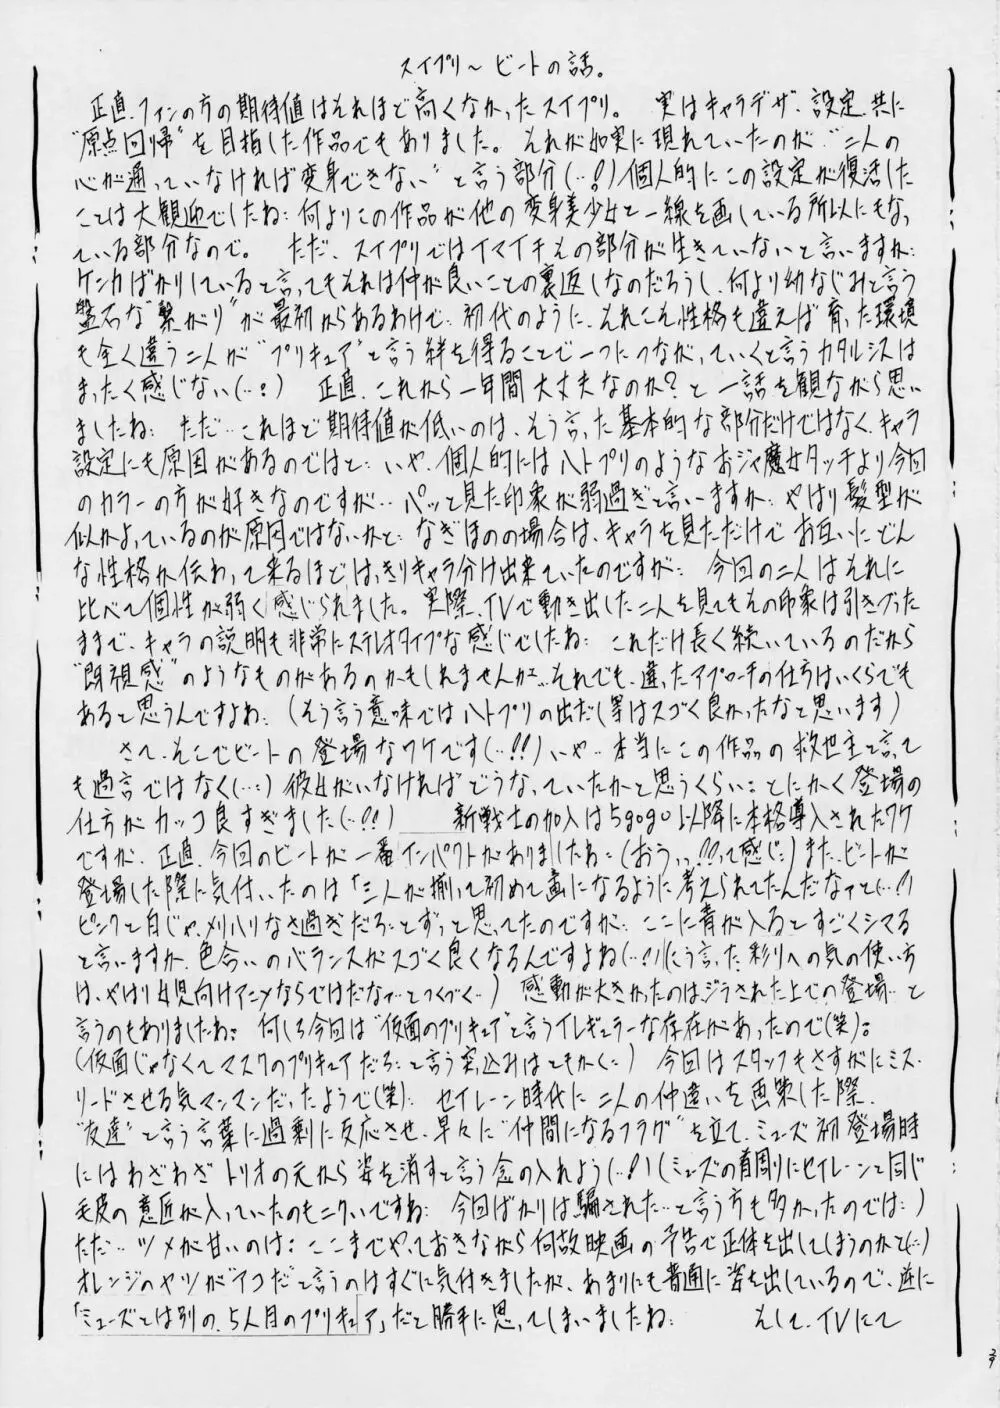 スイプリ～ビートの話。
正直、ファンの方の期待値はそれほど高くなかったスイプリ。 実はキャラデザ、設定共に
“原点回帰”を目指した作品でもありました。それが如実に現れていたのが、“二人の
心が通っていなければ変身できない”と言う部分(…!)個人的にこの設定が復活した
ことは大歓迎でしたね…何よりこの作品が他の変身美少女と一線を画している所以にもなっ
ている部分なので。 ただ、スイプリではイマイチその部分が生きていないと言いますか…
ケンカばかりしていると言ってもそれは仲が良いことの裏返しなのだろうし、何より幼なじみと言う
盤石な“繋がり”が最初からあるわけで…初代のように、それこそ性格も違えば育った環境
も全く違う二人が“プリキュア”と言う絆を得ることで一つにつながっていくと言うカタルシスは
まったく感じない(…!) 正直、これから一年間大丈夫なのか?と一話を観ながら思い
ましたね… ただ…これほど期待値が低いのは、そう言った基本的な部分だけではなく、キャラ
設定にも原因があるのではと… いや、個人的にはハトプリのようなおジャ魔女タッチより今回
のカラーの方が好きなのですが…パッと見た印象が弱過ぎと言いますか…やはり髪型が
似かよっているのが原因ではないかと… なぎほのの場合は、キャラを見ただけでお互いにどん
な性格か伝わって来るほどはっきりキャラ分け出来ていたのですが… 今回の二人はそれに
比べて個性が弱く感じられました。実際、TVで動き出した二人を見てもその印象は引きずった
ままで、キャラの説明も非常にステレオタイプな感じでしたね… これだけ長く続いているのだから
“既視感”のようなものがあるのかもしれませんが…それでも、違ったアプローチの仕方はいくらでも
あると思うんですよね…(そう言う意味ではハトプリの出だし等はスゴく良かったなと思います)
さて、そこでビートの登場なワケです(…!!)いや…本当にこの作品の救世主と言って
も過言ではなく(…)彼女がいなければどうなっていたかと思うくらいことにかく登場の
仕方がカッコ良すぎました(…!!) 新戦士の加入は5gogo以降に本格導入されたワケ
ですが、正直、今回のビートが一番インパクトがありましたね…(おうっ、!!って感じに)また、ビートが
登場した際に気付いたのは「三人が揃って初めて画になるように考えられてたんだなァと(…!)
ピンクと白じゃ、メリハリなさ過ぎだろ…とずっと思ってたのですが… ここに青が入るとすごくシマる
と言いますか、色合いのバランスがスゴく良くなるんですよね(…!)(こう言った彩りへの気の使い方
は、やはり女児向けアニメならではだなァ…とつくづく…) 感動が大きかったのはジラされた上での登場…と
言うのもありましたね… 何しろ今回は“仮面のプリキュア”と言うイレギュラーな存在があったので(笑)。
(仮面じゃなくてマスクのプリキュアだろ…と言う突込みはともかく…) 今回はスタッフもさすがにミス
リードさせる気マンマンだったようで(笑)… セイレーン時代に二人の仲違いを画策した際、
“友達”と言う言葉に過剰に反応させ、早々に“仲間になるフラグ”を立て、ミューズ初登場時
にはわざわざトリオの元から姿を消すと言う念の入れよう(…!)(ミューズの首周りにセイレーンと同じ
毛皮の意匠が入っていたのもニクいですね… 今回ばかりは騙された…と言う方も多かったのでは…)
ただ…ツメが甘いのは… ここまでやっておきながら何故映画の予告で正体を出してしまうのかと(…)
オレンジのヤツが“アコだ”と言うのはすぐに気付きましたが、あまりにも普通に姿を出しているので、逆に
「ミューズとは別の、5人目のプリキュア」だと勝手に思ってしまいましたね… そして、TVにて